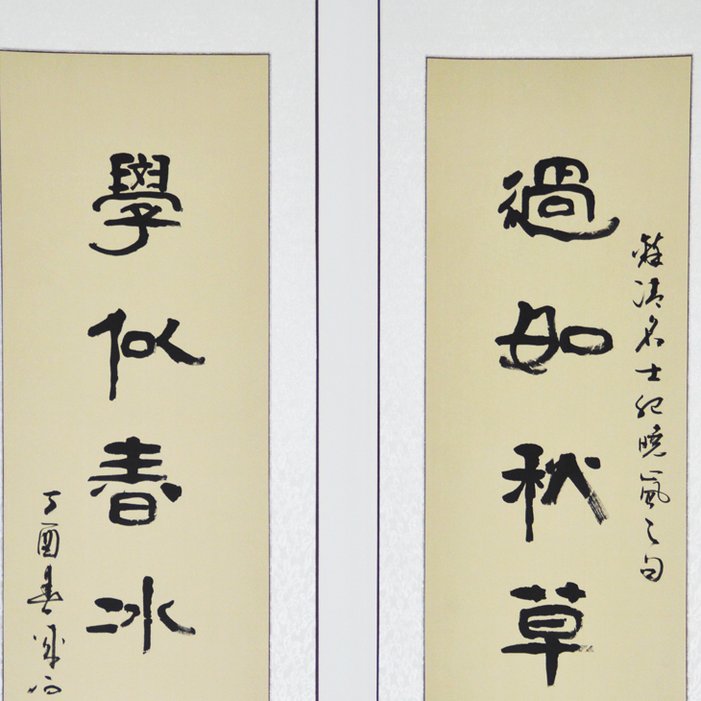 清名士紀曉嵐之句
過如秋草
學似春冰
丁酉春